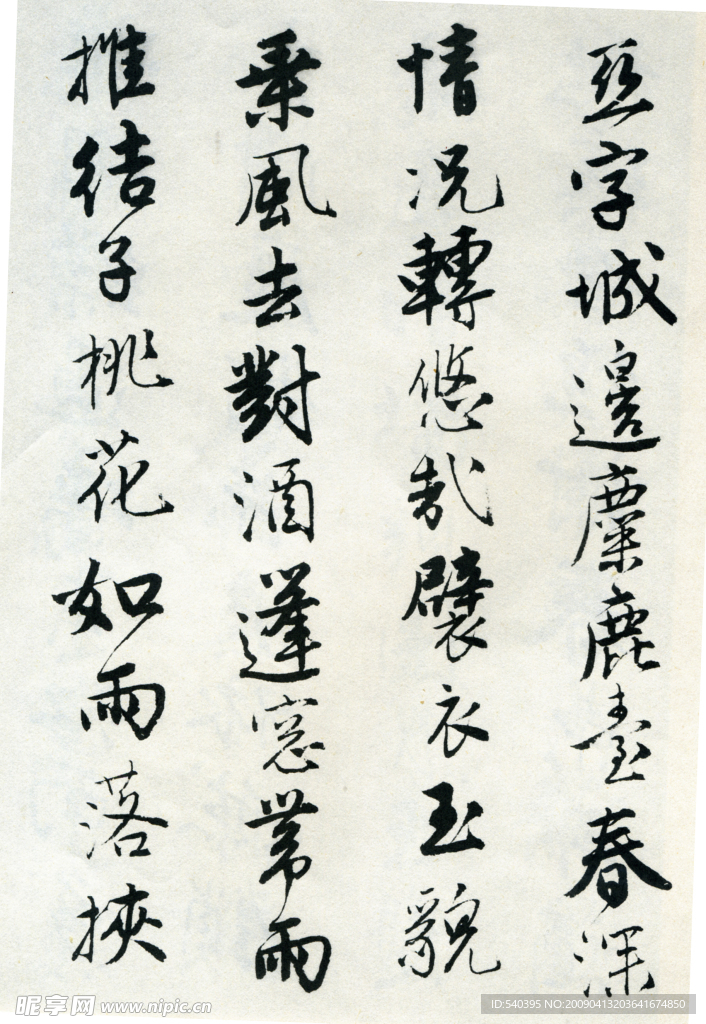 亞字城邊麋鹿臺春深
情況轉悠哉襞衣玉貌
乘風去對酒蓬窓帶雨
推結子桃花如雨落挾
昵享网 www.nipic.cn
ID:540395 NO:20090413203641674850